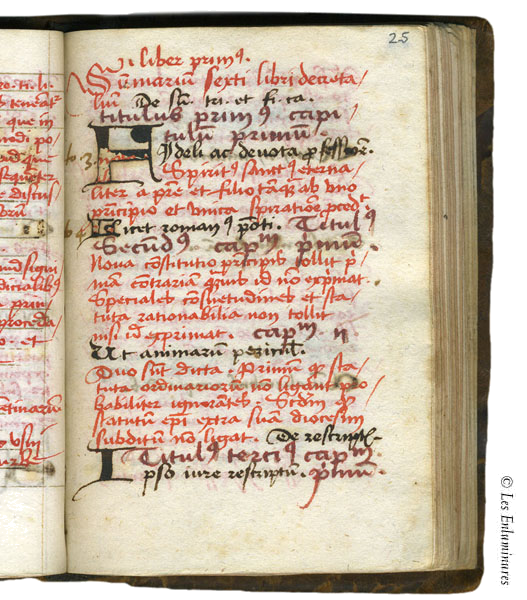 25
vi liber primꝰ
Sūmariū sexti libri decreta/
liū De sū. tri. et fi. ca.
titulus primꝰ capi
tulū primū.
Fideli ac devota ꝓfessione.
Spiritꝰ sanctꝰ eterna/
liter a pre et filio tanqꝫ ab vno
principio et vnica spiratione ꝓcedit.
Licet romanꝰ ponti. Titulꝰ
Secūdꝰ capᵐ primū.
Nova cōstitutio principis tollit pri
mam cōtrariam qᵃuis id nō exprimat.
Speciales cōsuetudines et sta/
tuta rationabilia non tollit
nisi id exprimat. capᵐ ii
Ut animarū periculis.
Duo sūt dicta. Primum qꝫ sta/
tuta ordinariorū nō ligent pro
babiliter ignorātes. Scdm qꝫ
statutū epi extra suā diocesim
subditū nō ligat. De rescriptis.
Titulꝰ terciꝰ capᵐ
Ipso iure rescriptū. primū.
© Les Enluminures